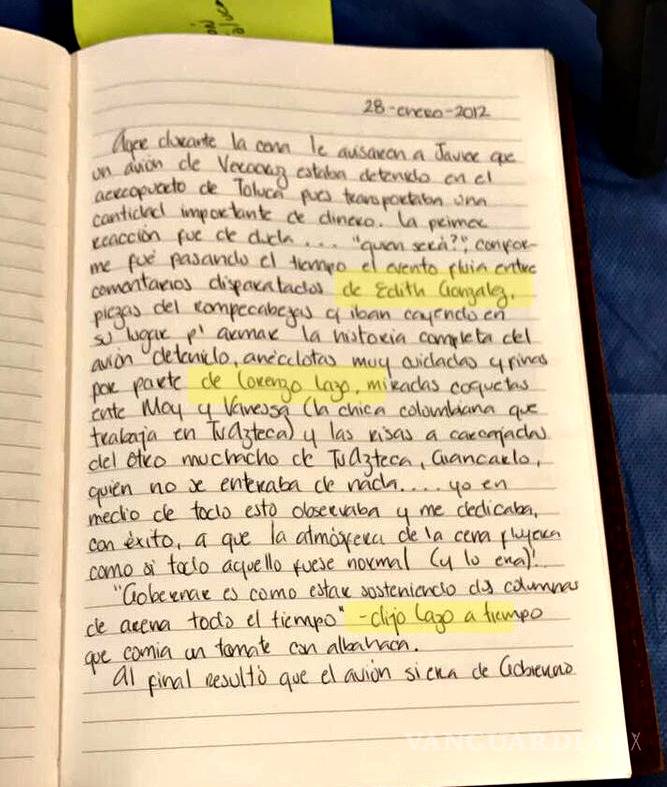 28-enero-2012
Ayer durante la cena le avisaron a Javier que
un avión de Veracruz estaba detenido en el
aereopuerto de Toluca pues transportaba una
cantidad importante de dinero. La primer
reacción fue de duda... "quien será?", confor-
me fué pasando el tiempo el evento fluía entre
comentarios disparatados de Edith González,
piezas del rompecabezas q iban cayendo en
su lugar p' armar la historia completa del
avión detenido, anécdotas muy cuidadas y finas
por parte de Lorenzo Lazo, miradas coquetas
ente Moy y Vanessa (la chica colombiana que
trabaja en TvAzteca) y las risas a carcajadas
del otro muchacho de TvAzteca, Giancarlo,
quién no se enteraba de nada.... yo en
medio de todo esto observaba y me dedicaba,
con éxito, a que la atmósfera de la cena fluyera
como si todo aquello fuese normal (y lo era)!
"Gobernar es como estar sosteniendo dos columnas
de arena todo el tiempo" -dijo Lazo a tiempo
que comía un tomate con albahaca.
Al final resultó que el avión si era de Gobierno
VANGUARDIA MX